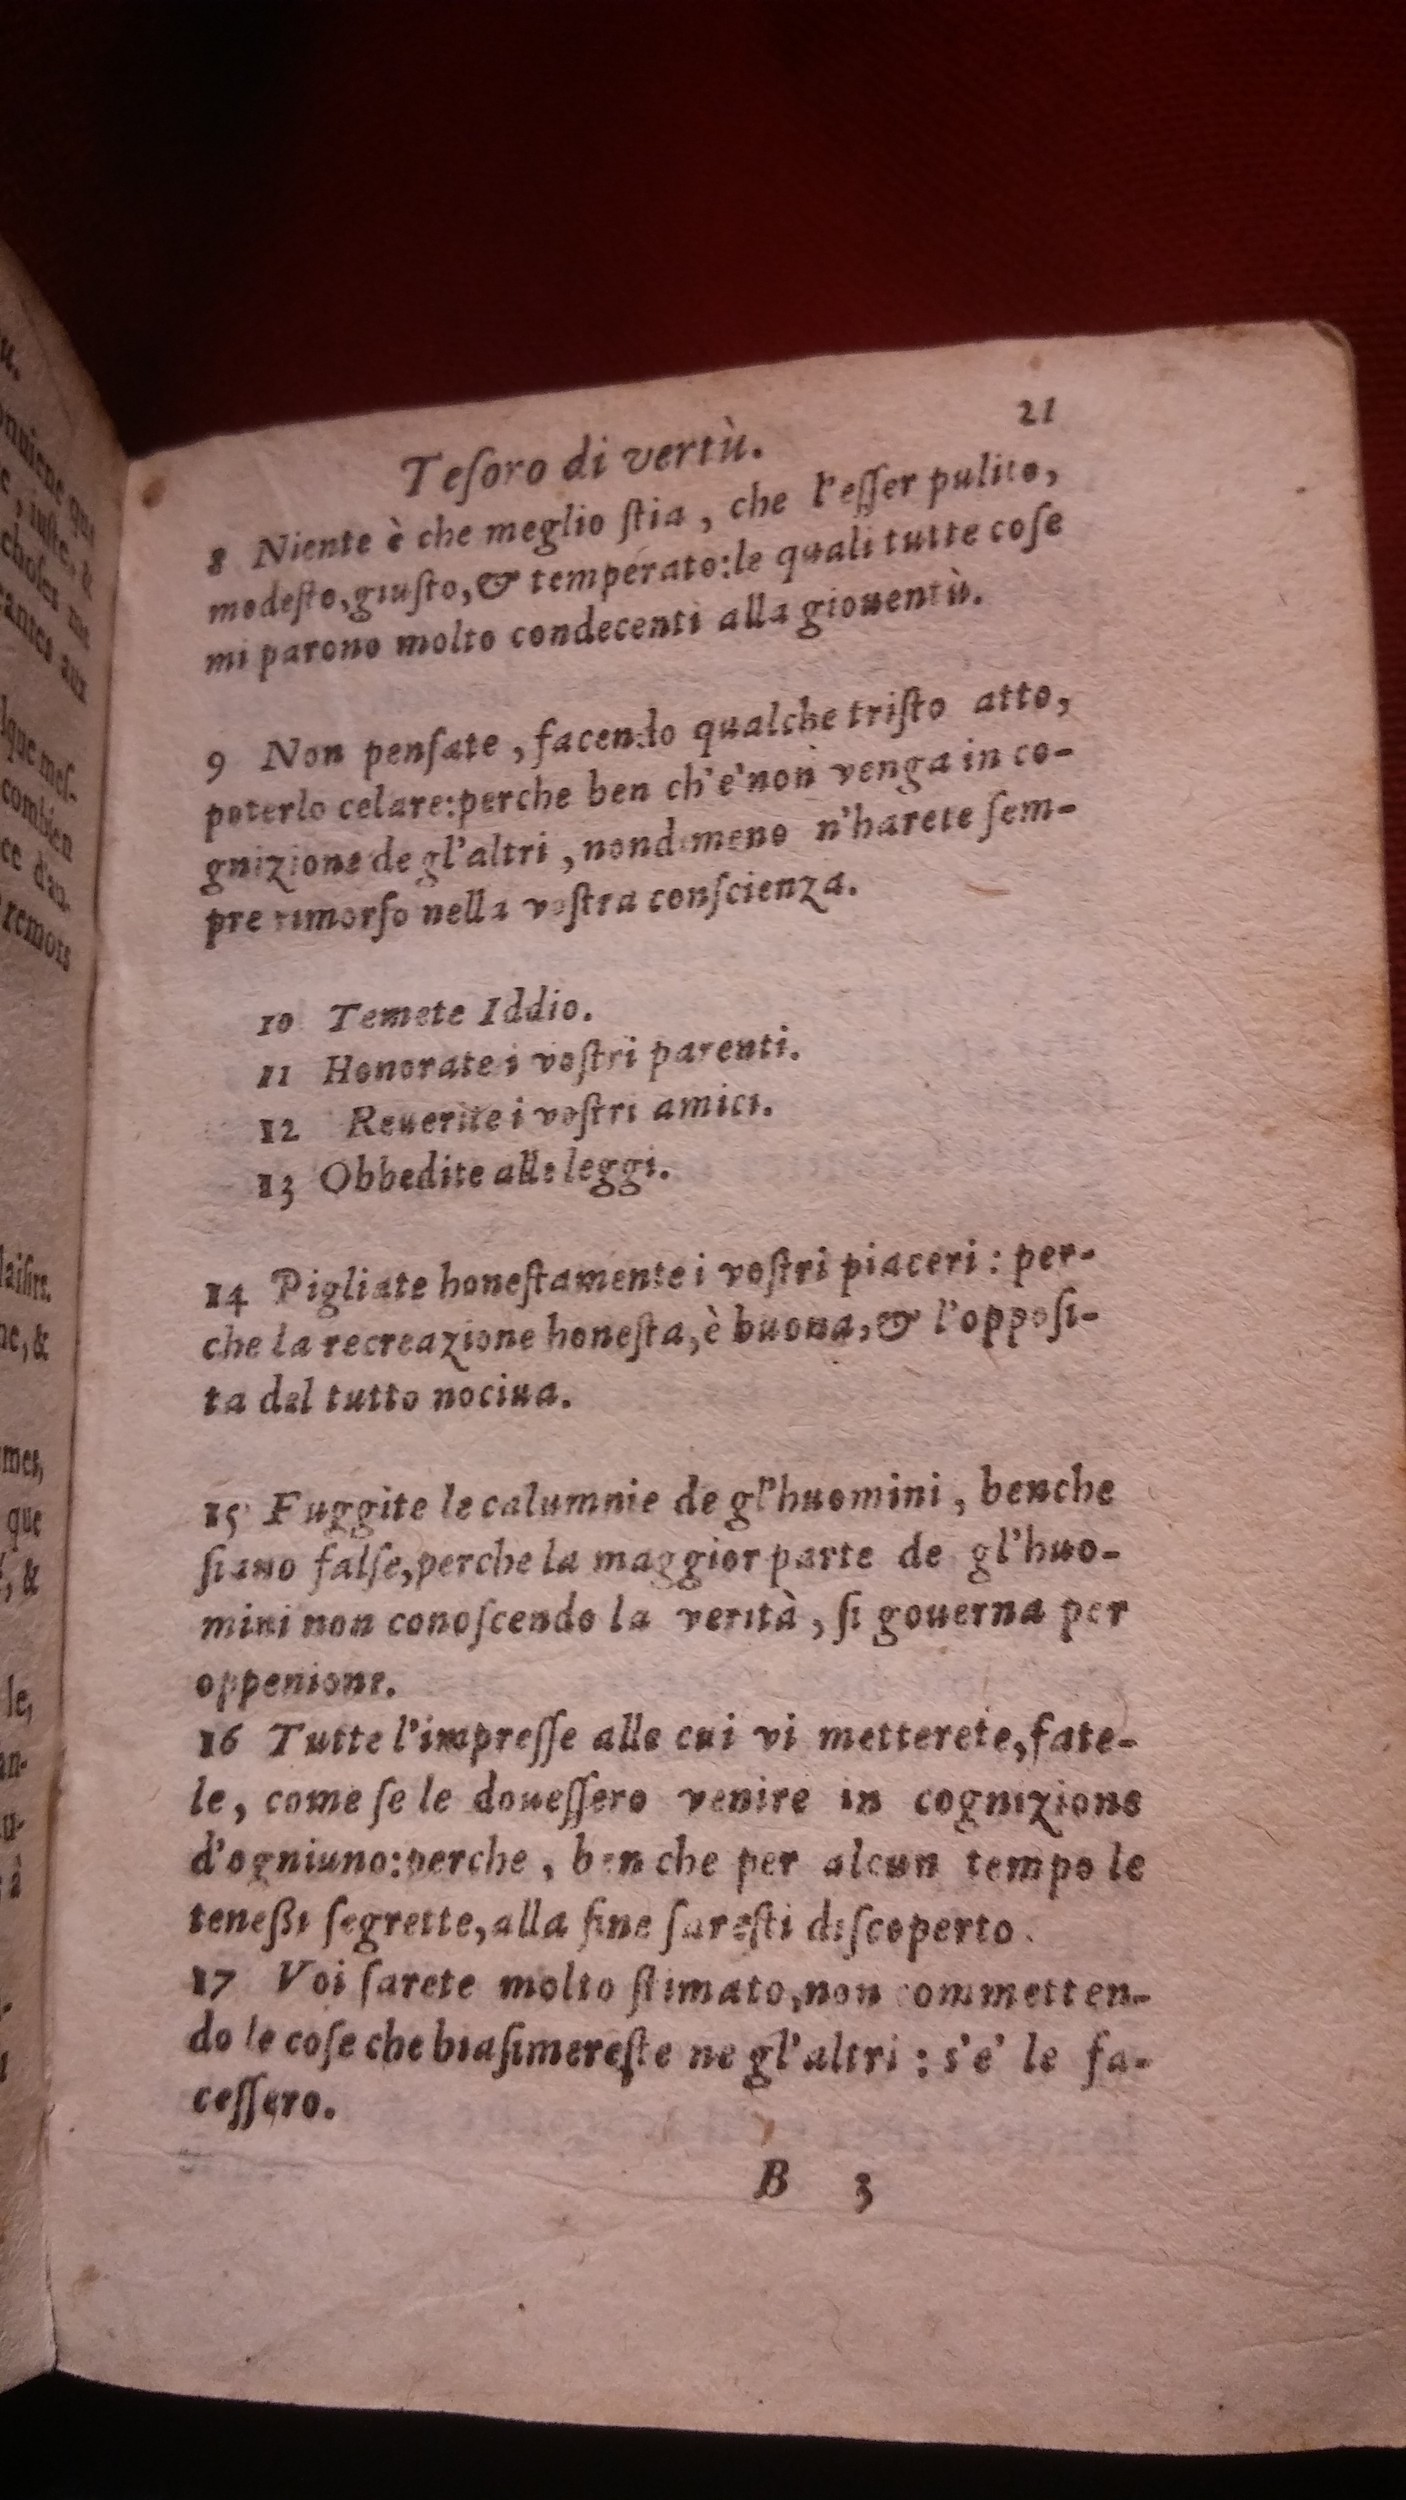 u.
onuiene que
e, iuste, &
choses me
eantes aux
lque mes-
combien
ce d'au-
remors
laisirs.
ne, &
mes,
que
, &
le,
an-
u-
à
21
Teſoro di vertù.
8 Niente è che meglio ſtia, che l'eſſer pulito,
modeſto, giuſto, & temperato: le quali tutte coſe
mi parono molto condecenti alla giouentù.
9 Non penſate, facendo qualche triſto atto,
poterlo celare: perche ben ch'e' non venga in co-
gnizione de gl'altri, nondimeno n'harete ſem-
pre rimorſo nella voſtra conſcienza.
10 Temete Iddio.
11 Honorate i voſtri parenti.
12 Reuerite i voſtri amici.
13 Obbedite alle leggi.
14 Pigliate honeſtamente i voſtri piaceri: per-
che la recreazione honeſta, è buona, & l'oppoſi-
ta del tutto nociua.
15 Fuggite le calumnie de gl'huomini, benche
ſiano falſe, perche la maggior parte de gl'huo-
mini non conoſcendo la verità, ſi gouerna per
oppenione.
16 Tutte l'impreſſe alle cui vi metterete, fate-
le, come ſe le doueſſero venire in cognizione
d'ogniuno: perche, ben che per alcun tempo le
teneßi ſegrette, alla fine ſareſti diſcoperto.
17 Voi ſarete molto ſtimato, non commetten-
do le coſe che biaſimereſte ne gl'altri: s'e' le fa-
ceſſero.
B 3